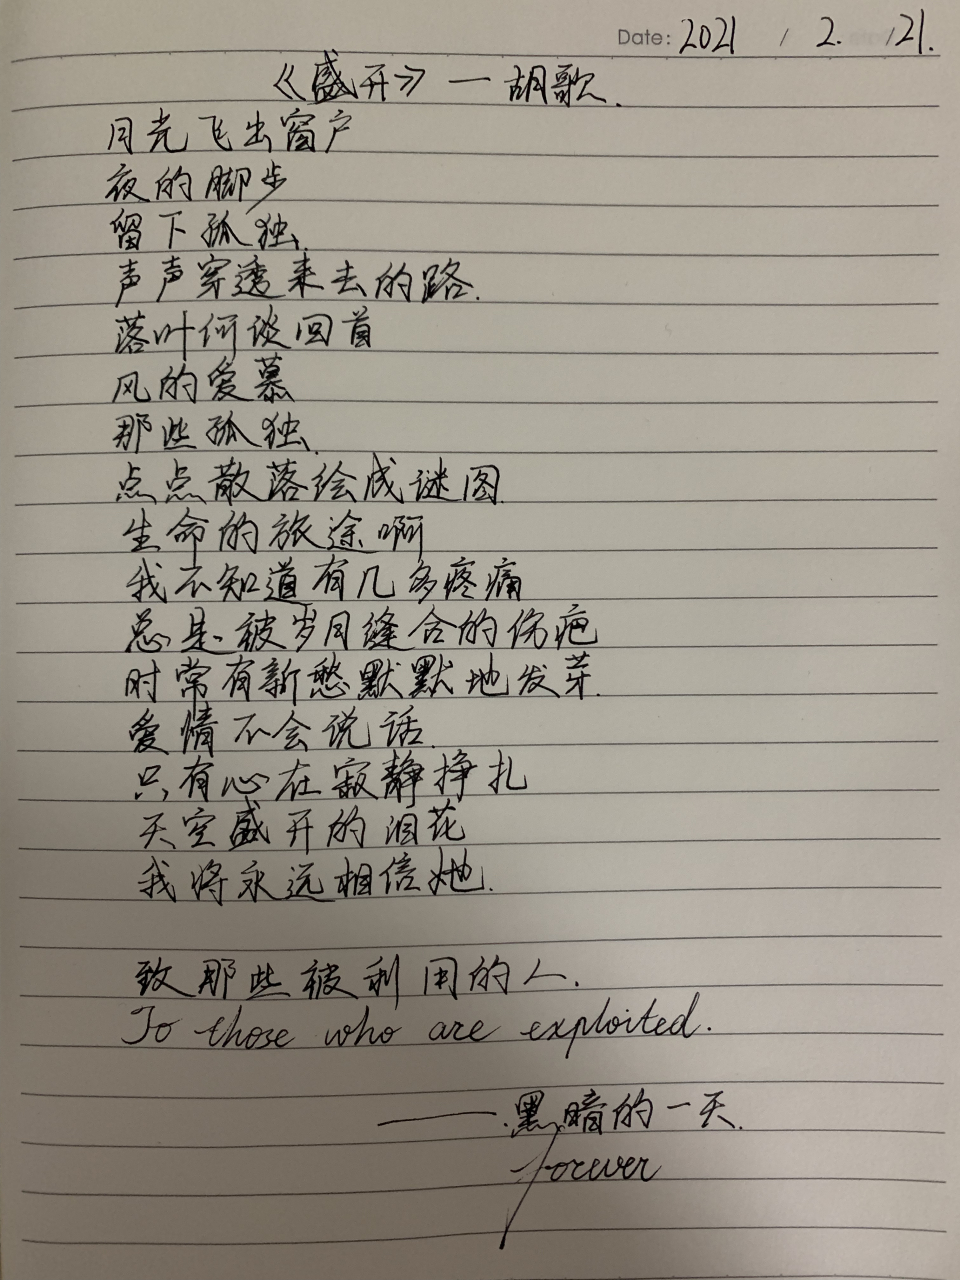 Date: 2021 / 2. /21.
《盛开》一胡歌.
月光飞出窗户
夜的脚步
留下孤独.
声声穿透来去的路.
落叶何谈回首
风的爱慕
那些孤独.
点点散落绘成谜图.
生命的旅途啊
我不知道有几多疼痛
总是被岁月缝合的伤疤
时常有新愁默默地发芽.
爱情不会说话.
只有心在寂静挣扎
天空盛开的泪花
我将永远相信她.
致那些被利用的人.
To those who are exploited.
——黑暗的一天.
forever